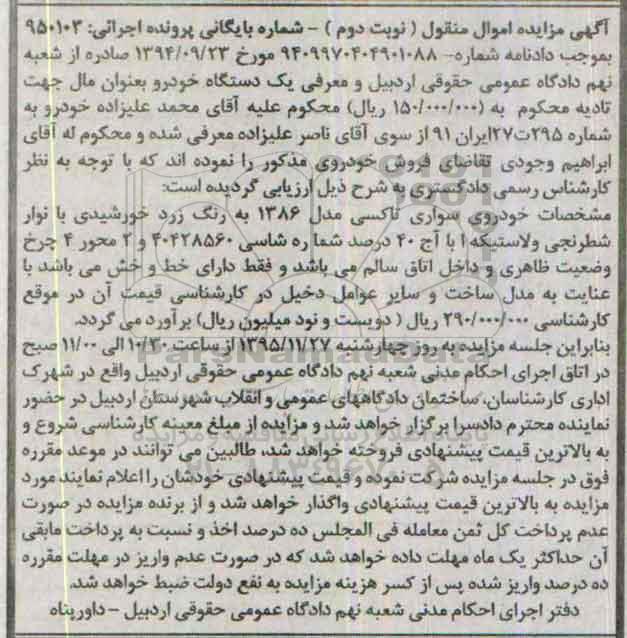 آگهی مزایده اموال منقول ( نوبت دوم ) - شماره بایگانی پرونده اجرائی: ۹۵۰۱۰۳
بموجب دادنامه شماره- ۹۴۰۹۹۷۰۴۰۴۹۰۱۰۸۸ مورخ ۱۳۹۴/۰۹/۲۳ صادره از شعبه
نهم دادگاه عمومی حقوقی اردبیل و معرفی یک دستگاه خودرو بعنوان مال جهت
تادیه محکوم به (۱۵۰/۰۰۰/۰۰۰ ریال) محکوم علیه آقای محمد علیزاده خودرو به
شماره ۲۹۵ت۲۷ایران ۹۱ از سوی آقای ناصر علیزاده معرفی شده و محکوم له آقای
ابراهیم وجودی تقاضای فروش خودروی مذکور را نموده اند که با توجه به نظر
کارشناس رسمی دادگستری به شرح ذیل ارزیابی گردیده است:
مشخصات خودروی سواری تاکسی مدل ۱۳۸۶ به رنگ زرد خورشیدی با نوار
شطرنجی ولاستیکه ا با آج ۴۰ درصد شما ره شاسی ۴۰۴۲۸۵۶۰ و ۲ محور ۴ چرخ
وضعیت ظاهری و داخل اتاق سالم می باشد و فقط دارای خط و خش می باشد با
عنایت به مدل ساخت و سایر عوامل دخیل در کارشناسی قیمت آن در موقع
کارشناسی ۲۹۰/۰۰۰/۰۰۰ ریال ( دویست و نود میلیون ریال) برآورد می گردد.
بنابراین جلسه مزایده به روز چهارشنبه ۱۳۹۵/۱۱/۲۷ از ساعت ۱۰/۳۰ الی ۱۱/۰۰ صبح
در اتاق اجرای احکام مدنی شعبه نهم دادگاه عمومی حقوقی اردبیل واقع در شهرک
اداری کارشناسان، ساختمان دادگاههای عمومی و انقلاب شهرستان اردبیل در حضور
نماینده محترم دادسرا برگزار خواهد شد و مزایده از مبلغ معینه کارشناسی شروع و
به بالاترین قیمت پیشنهادی فروخته خواهد شد، طالبین می توانند در موعد مقرره
فوق در جلسه مزایده شرکت نموده و قیمت پیشنهادی خودشان را اعلام نمایند مورد
مزایده به بالاترین قیمت پیشنهادی واگذار خواهد شد و از برنده مزایده در صورت
عدم پرداخت کل ثمن معامله فی المجلس ده درصد اخذ و نسبت به پرداخت مابقی
آن حداکثر یک ماه مهلت داده خواهد شد که در صورت عدم واریز در مهلت مقرره
ده درصد واریز شده پس از کسر هزینه مزایده به نفع دولت ضبط خواهد شد.
دفتر اجرای احکام مدنی شعبه نهم دادگاه عمومی حقوقی اردبیل - داورپناه